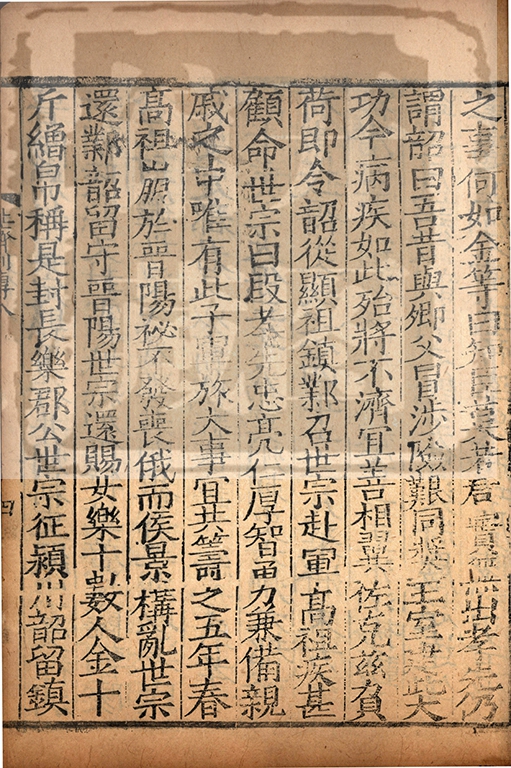 之事何如金等曰知臣莫若君實無出孝先仍
謂韶曰吾昔與卿父冒涉險艱同獎王室建此大
功今病疾如此殆將不濟宜善相翼佐克茲負
荷即令韶從顯祖鎮鄴召世宗赴軍高祖疾甚
顧命世宗曰段孝先忠亮仁厚智勇兼備親
戚之中唯有此子軍旅大事宜共籌之五年春
高祖崩於晉陽秘不發喪俄而侯景構亂世宗
還鄴韶留守晉陽世宗還賜女樂十數人金十
斤繒帛稱是封長樂郡公世宗征潁川韶留鎮
四